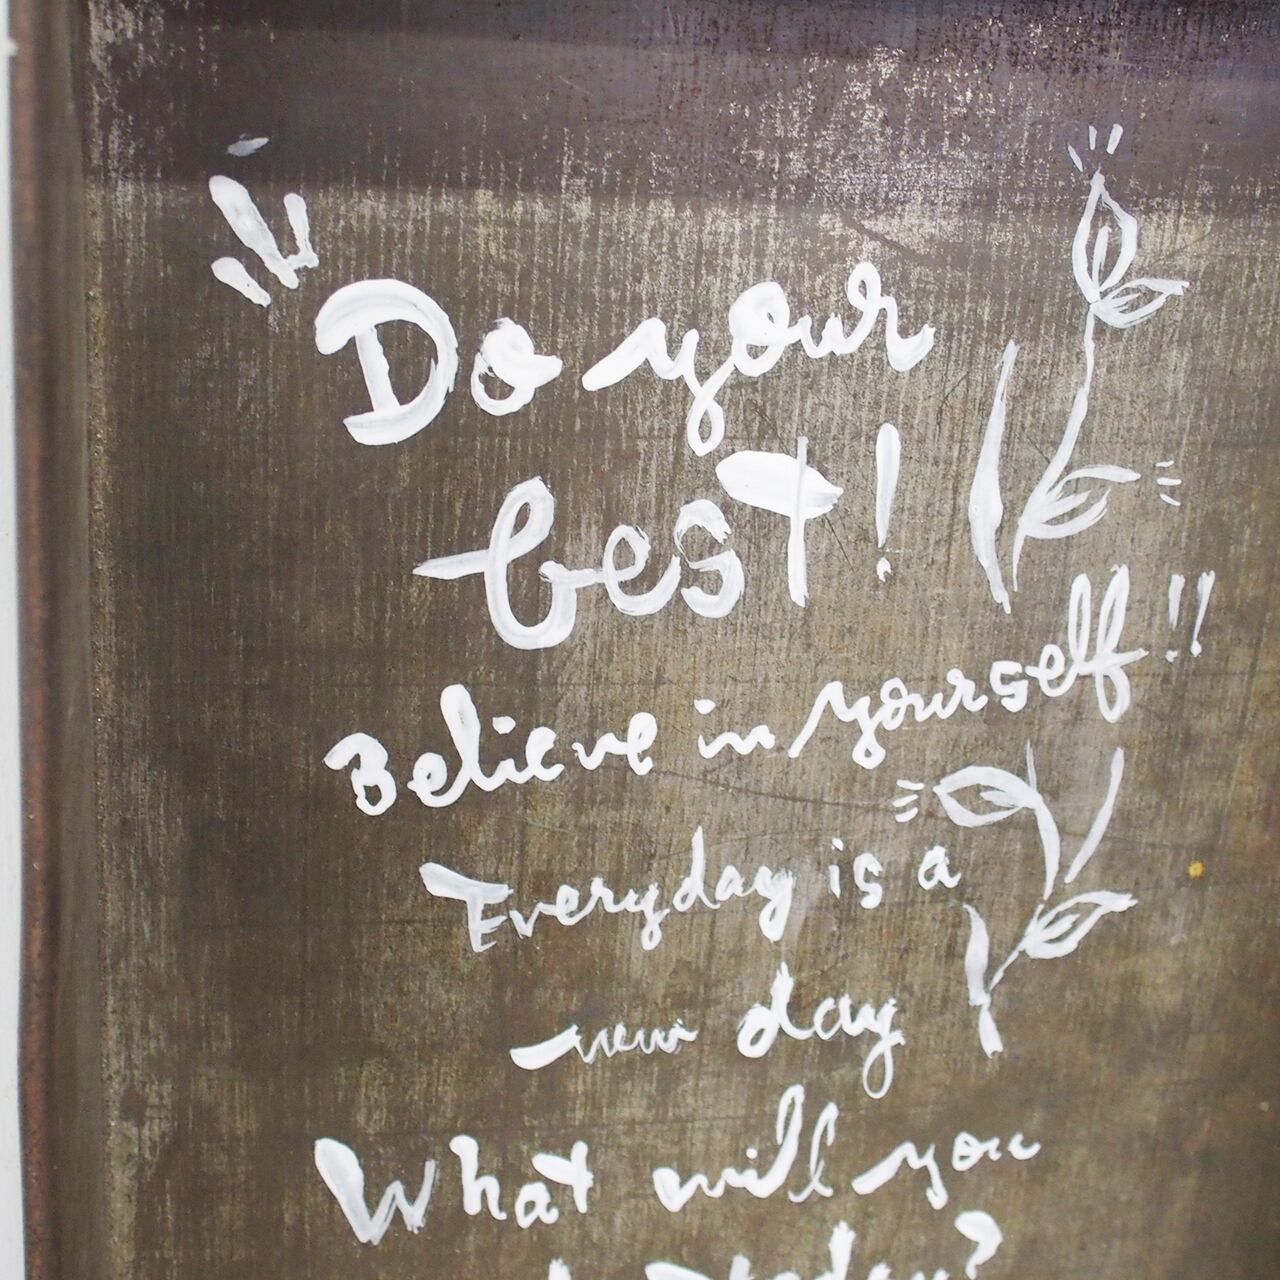 Do your
best!
Believe in yourself!!
Everyday is a
new day
What will you
today?